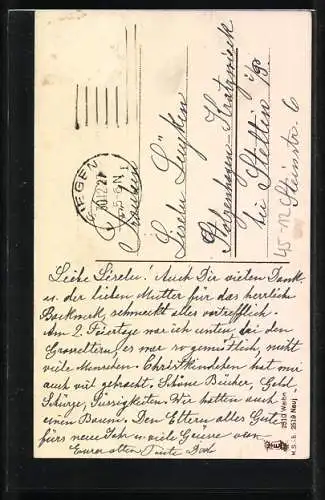 SIEGEN
30.12.27
5-6 N
Fräulein
Liselu Luyken
Stolzenhagen-Kratzwieck
bei Stettin
Steinstr. 6
Liebe Liselu! Auch Dir vielen Dank
u. der lieben Mutter für das herrliche
Backwerk, schmeckt alles vortrefflich.
Am 2. Feiertage war ich unten, bei den
Grosseltern, es war so gemütlich, nicht
viele Menschen. Christkindchen hat mir
auch viel gebracht. Schöne Bücher, Geld
Schürze, Süssigkeiten. Wir hatten auch
einen Baum. Den Eltern alles Gute
fürs neue Jahr u. viele Grüsse von
Eurer alten Tante
2510 Weihn
2519 Neuj
H.S.i.B.